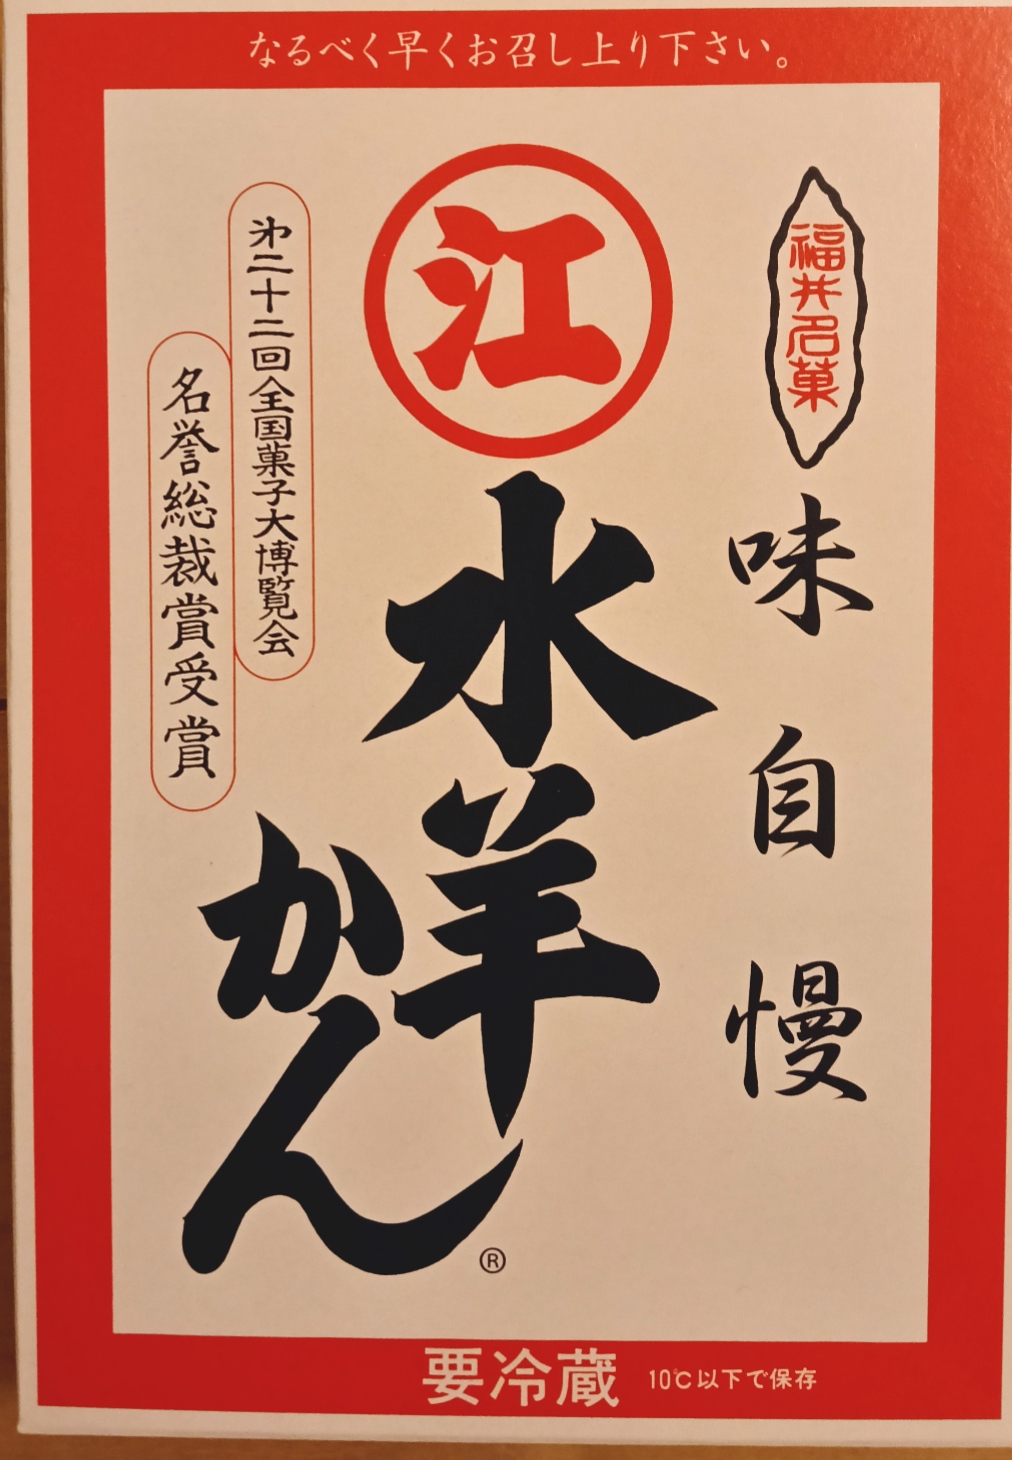 なるべく早くお召し上り下さい。
福井名菓
味自慢
江
水羊かん
®
第二十二回全国菓子大博覧会
名誉総裁賞受賞
要冷蔵 10℃以下で保存